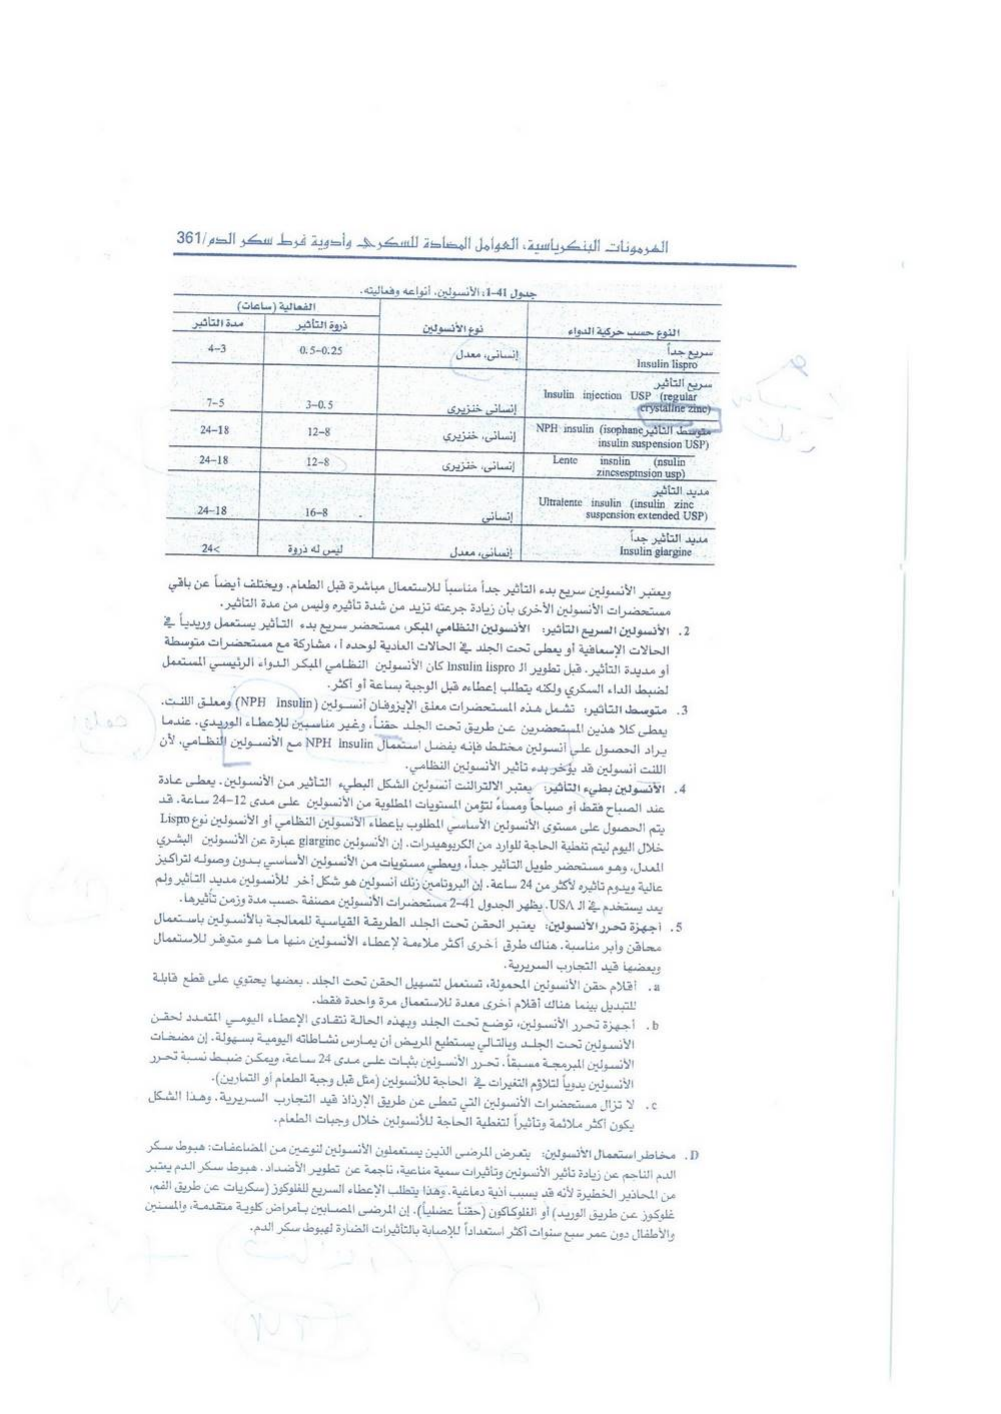 الهرمونات البنكرياسية، العوامل المضادة للسكري وأدوية فرط سكر الدم/361
جدول 41-1: الأنسولين. أنواعه وفعاليته.
النوع حسب حركية الدواء نوع الأنسولين الفعالية (ساعات)
ذروة التأثير مدة التأثير
سريع جداً
Insulin lispro إنساني، معدل 0.5-0.25 4-3
سريع التأثير
Insulin injection USP (regular
crystalline zinc) إنساني خنزيري 3-0.5 7-5
متوسط التأثير NPH insulin (isophane
insulin suspension USP) إنساني، خنزيري 12-8 24-18
Lente insnlin (nsulin
zincsesptnsion usp) إنساني، خنزيري 12-8 24-18
مديد التأثير
Ultralente insulin (insulin zinc
suspension extended USP) إنساني 16-8 24-18
مديد التأثير جداً
Insulin glargine إنساني، معدل ليس له ذروة 24<
ويعتبر الأنسولين سريع بدء التأثير جداً مناسباً للاستعمال مباشرة قبل الطعام. ويختلف أيضاً عن باقي
مستحضرات الأنسولين الأخرى بأن زيادة جرعته تزيد من شدة تأثيره وليس من مدة التأثير.
2. الأنسولين السريع التأثير: الأنسولين النظامي المبكر، مستحضر سريع بدء التأثير يستعمل وريدياً في
الحالات الإسعافية أو يعطى تحت الجلد في الحالات العادية لوحده أ، مشاركة مع مستحضرات متوسطة
أو مديدة التأثير. قبل تطوير الـ Insulin lispro كان الأنسولين النظامي المبكر الدواء الرئيسي المستعمل
لضبط الداء السكري ولكنه يتطلب إعطاءه قبل الوجبة بساعة أو أكثر.
3. متوسط التأثير: تشمل هذه المستحضرات معلق الإيزوفان أنسولين (NPH Insulin) ومعلق اللنت.
يعطى كلا هذين المستحضرين عن طريق تحت الجلد حقناً، وغير مناسبين للإعطاء الوريدي. عندما
يراد الحصول على أنسولين مختلط فإنه يفضل استعمال NPH Insulin مع الأنسولين النظامي، لأن
اللنت أنسولين قد يؤخر بدء تأثير الأنسولين النظامي.
4. الأنسولين بطيء التأثير: يعتبر الالترالنت أنسولين الشكل البطيء التأثير من الأنسولين. يعطى عادة
عند الصباح فقط أو صباحاً ومساءً لتؤمن المستويات المطلوبة من الأنسولين على مدى 12-24 ساعة. قد
يتم الحصول على مستوى الأنسولين الأساسي المطلوب بإعطاء الأنسولين النظامي أو الأنسولين نوع Lispro
خلال اليوم ليتم تغطية الحاجة للوارد من الكربوهيدرات. إن الأنسولين glargine عبارة عن الأنسولين البشري
المعدل، وهو مستحضر طويل التأثير جداً، ويعطي مستويات من الأنسولين الأساسي بدون وصوله لتراكيز
عالية ويدوم تأثيره لأكثر من 24 ساعة. إن البروتامين زنك أنسولين هو شكل آخر للأنسولين مديد التأثير ولم
يعد يستخدم في الـ USA. يظهر الجدول 41-2 مستحضرات الأنسولين مصنفة حسب مدة وزمن تأثيرها.
5. أجهزة تحرر الأنسولين: يعتبر الحقن تحت الجلد الطريقة القياسية للمعالجة بالأنسولين باستعمال
محاقن وأبر مناسبة. هناك طرق أخرى أكثر ملاءمة لإعطاء الأنسولين منها ما هو متوفر للاستعمال
وبعضها قيد التجارب السريرية.
a. أقلام حقن الأنسولين المحمولة، تستعمل لتسهيل الحقن تحت الجلد. بعضها يحتوي على قطع قابلة
للتبديل بينما هناك أقلام أخرى معدة للاستعمال مرة واحدة فقط.
b. أجهزة تحرر الأنسولين، توضع تحت الجلد وبهذه الحالة نتفادى الإعطاء اليومي المتعدد لحقن
الأنسولين تحت الجلد وبالتالي يستطيع المريض أن يمارس نشاطاته اليومية بسهولة. إن مضخات
الأنسولين المبرمجة مسبقاً، تحرر الأنسولين بثبات على مدى 24 ساعة، ويمكن ضبط نسبة تحرر
الأنسولين يدوياً لتلاؤم التغيرات في الحاجة للأنسولين (مثل قبل وجبة الطعام أو التمارين).
c. لا تزال مستحضرات الأنسولين التي تعطى عن طريق الإرذاذ قيد التجارب السريرية. وهذا الشكل
يكون أكثر ملائمة وتأثيراً لتغطية الحاجة للأنسولين خلال وجبات الطعام.
D. مخاطر استعمال الأنسولين: يتعرض المرضى الذين يستعملون الأنسولين لنوعين من المضاعفات: هبوط سكر
الدم الناجم عن زيادة تأثير الأنسولين وتأثيرات سمية مناعية، ناجمة عن تطوير الأضداد. هبوط سكر الدم يعتبر
من المحاذير الخطيرة لأنه قد يسبب أذية دماغية. وهذا يتطلب الإعطاء السريع للغلوكوز (سكريات عن طريق الفم،
غلوكوز عن طريق الوريد) أو الغلوكاكون (حقناً عضلياً). إن المرضى المصابين بأمراض كلوية متقدمة، والمسنين
والأطفال دون عمر سبع سنوات أكثر استعداداً للإصابة بالتأثيرات الضارة لهبوط سكر الدم.